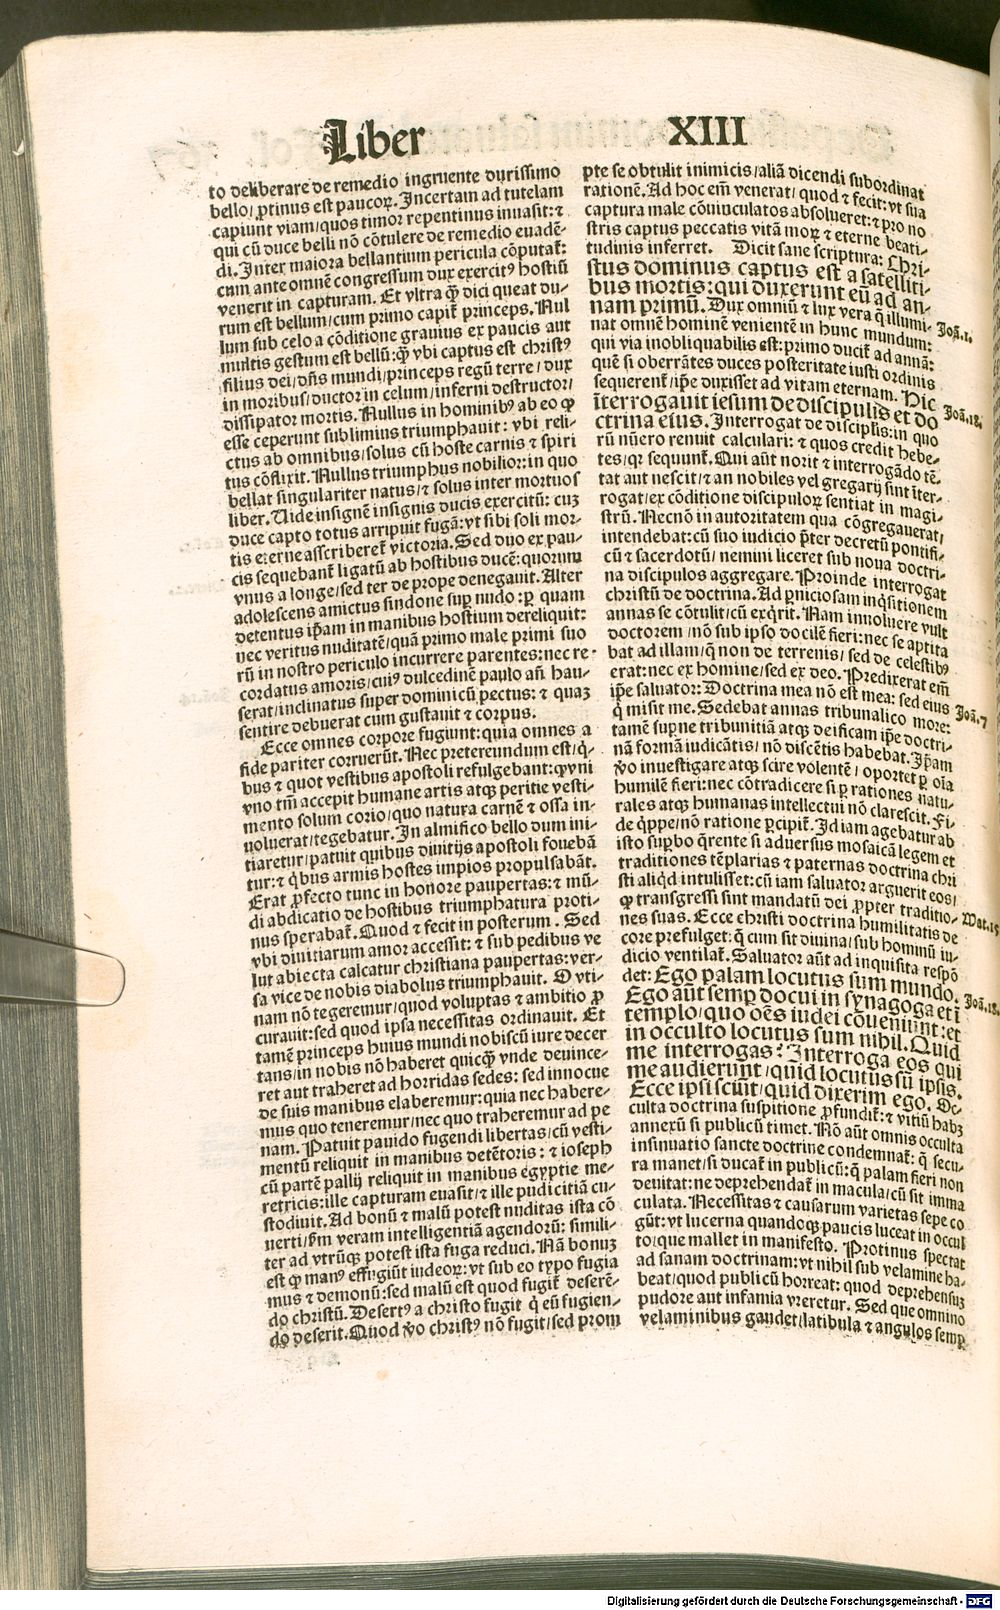 Liber XIII
to deliberare de remedio ingruente durissimo
bello/ ꝓtinus est paucoꝝ. Incertam ad tutelam
capiunt viam/quos timor repentinus inuasit: ⁊
qui cū duce belli nō cōtulere de remedio euadē⸗
di. Inter maiora bellantium pericula cōputat̄:
cum ante omnē congressum dux exercitꝰ hostiū
venerit in capturam. Et vltra ꝙ̄ dici queat du⸗
rum est bellum/cum primo capit̄ princeps. Nul
lum sub celo a cōditione grauius ex paucis aut
multis gestum est bellū: ꝙ̄ vbi captus est christꝰ
filius dei/dn̄s mundi/princeps regū terre/ dux
in moribus/ductor in celum/inferni destructor/
dissipator mortis. Nullus in hominibꝰ ab eo ꝙ
esse ceperunt sublimius triumphauit: vbi reli⸗
ctus ab omnibus/solus cū hoste carnis ⁊ spiri
tus cōflixit. Nullus triumphus nobilior: in quo
bellat singulariter natus/⁊ solus inter mortuos
liber. Uide insignē insignis ducis exercitū: cuȝ
duce capto totus arripuit fugā: vt sibi soli mor⸗
tis eterne asscriberet̄ victoria. Sed duo ex pau⸗
cis sequebant̄ ligatū ab hostibus ducē: quorum
vnus a longe/sed ter de prope denegauit. Alter
adolescens amictus sindone suꝑ nudo: ꝑ quam
detentus ip̄am in manibus hostium dereliquit:
nec veritus nuditatē/quā primo male primi suo
rū in nostro periculo incurrere parentes: nec re⸗
cordatus amoris/cuiꝰ dulcedinē paulo an̄ hau⸗
serat/inclinatus super dominicū pectus: ⁊ quaȝ
sentire debuerat cum gustauit ⁊ corpus.
Ecce omnes corpore fugiunt: quia omnes a
fide pariter corruerūt. Nec pretereundum est/q̇⸗
bus ⁊ quot vestibus apostoli refulgebant: qꝫ vni
vno tm̄ accepit humane artis atqꝫ peritie vesti⸗
mento solum corio/quo natura carnē ⁊ ossa in⸗
uoluerat/tegebatur. In almifico bello dum ini⸗
tiaretur/patuit quibus diuitijs apostoli fouebā
tur: ⁊ q̇bus armis hostes impios propulsabāt.
Erat ꝓfecto tunc in honore paupertas: ⁊ mū⸗
di abdicatio de hostibus triumphatura proti⸗
nus sperabat̄. Quod ⁊ fecit in posterum. Sed
vbi diuitiarum amor accessit: ⁊ sub pedibus ve
lut abiecta calcatur christiana paupertas: ver⸗
sa vice de nobis diabolus triumphauit. O vti⸗
nam nō tegeremur/quod voluptas ⁊ ambitio ꝓ
curauit: sed quod ipsa necessitas ordinauit. Et
tamē princeps huius mundi nobiscū iure decer
tans/in nobis nō haberet quicꝙ̄ vnde deuince⸗
ret aut traheret ad horridas sedes: sed innocue
de suis manibus elaberemur: quia nec habere⸗
mus quo teneremur/nec quo traheremur ad pe
nam. Patuit pauido fugendi libertas/cū vesti⸗
mentū reliquit in manibus detētoris: ⁊ ioseph
cū partē pallij reliquit in manibus egyptie me⸗
retricis: ille capturam euasit/⁊ ille pudicitiā cu⸗
stodiuit. Ad bonū ⁊ malū potest nuditas ista cō
uerti/ẜm veram intelligentiā agendorū: simili⸗
ter ad vtrūqꝫ potest ista fuga reduci. Nā bonuȝ
est ꝙ manꝰ effugiūt iudeoꝝ: vt sub eo typo fugia
mus ⁊ demonū: sed malū est quod fugit̄ deserē⸗
do christū. Desertꝰ a christo fugit q̇ eū fugien⸗
do deserit. Quod v̄o christꝰ nō fugit/sed prom
pte se obtulit inimicis/aliā dicendi subordinat
rationē. Ad hoc em̄ venerat/ quod ⁊ fecit: vt sua
captura male cōuinculatos absolueret: ⁊ pro no
stris captus peccatis vitā moꝝ ⁊ eterne beati⸗
tudinis inferret. Dicit sane scriptura: Chri⸗
stus dominus captus est a satelliti⸗
bus mortis: qui duxerunt eū ad an⸗
nam primū. Dux omniū ⁊ lux vera q̄ illumi⸗
nat omnē hominē venientē in hunc mundum:
qui via inobliquabilis est: primo ducit̄ ad annā:
quē si oberrātes duces posteritate iusti ordinis
sequerent̄/ip̄e duxisset ad vitam eternam. Hic
īterrogauit iesum de discipulis et do
ctrina eius. Interrogat de discipl̄is: in quo
rū nūero renuit calculari: ⁊ quos credit hebe⸗
tes/qꝛ sequunt̄. Qui aūt norit ⁊ interrogādo tē⸗
tat aut nescit/⁊ an nobiles vel gregarij sunt īter⸗
rogat/ex cōditione discipuloꝝ sentiat in magi⸗
strū. Necnō in autoritatem qua cōgregauerat/
intendebat: cū suo iudicio p̄ter decretū pontifi⸗
cū ⁊ sacerdotū/ nemini liceret sub noua doctri⸗
na discipulos aggregare. Proinde interrogat
christū de doctrina. Ad ꝑniciosam inq̇sitionem
annas se cōtulit/cū exq̇rit. Nam inuoluere vult
doctorem/nō sub ipso docilē fieri: nec se aptita
bat ad illam/q̄ non de terrenis/ sed de celestibꝰ
erat: nec ex homine/sed ex deo. Predixerat em̄
ip̄e saluator: Doctrina mea nō est mea: sed eius
q̇ misit me. Sedebat annas tribunalico more:
tamē suꝑne tribunitiā atqꝫ deificam ip̄e doctri⸗
nā formā iudicātis/ nō discētis habebat. Ip̄am
v̄o inuestigare atqꝫ scire volentē/ oportet ꝑ oīa
humilē fieri: nec cōtradicere si ꝑ rationes natu⸗
rales atqꝫ humanas intellectui nō clarescit. Fi⸗
de q̇ppe/nō ratione ꝑcipit̄. Id iam agebatur ab
isto suꝑbo q̄rente si aduersus mosaicā legem et
traditiones tēplarias ⁊ paternas doctrina chri
sti aliq̇d intulisset: cū iam saluator arguerit eos/
ꝙ transgressi sint mandatū dei ꝓpter traditio⸗
nes suas. Ecce christi doctrina humilitatis de
core prefulget: q̄ cum sit diuina/sub hominū iu⸗
dicio ventilat̄. Saluator aūt ad inquisita respō
det: Ego palam locutus sum mundo.
Ego aūt semꝑ docui in synagoga et ī
templo/ quo oēs iudei cōueniunt: et
in occulto locutus sum nihil. Quid
me interrogas? Interroga eos qui
me audierunt/quid locutus sū ipsis.
Ecce ipsi sciūt/quid dixerim ego. Oc⸗
culta doctrina suspitione ꝓfundit̄: ⁊ vitiū habȝ
annexū si publicū timet. Nō aūt omnis occulta
insinuatio sancte doctrine condemnat̄: q̄ secu⸗
ra manet/si ducat̄ in publicū: q̄ palam fieri non
deuitat: ne deprehendat̄ in macula/cū sit imma
culata. Necessitas ⁊ causarum varietas sepe co
gūt: vt lucerna quandoqꝫ paucis luceat in occul
to/que mallet in manifesto. Protinus spectat
ad sanam doctrinam: vt nihil sub velamine ha⸗
beat/quod publicū horreat: quod deprehensuȝ
pudore aut infamia vreretur. Sed que omnino
velaminibus gaudet/latibula ⁊ angulos semꝑ
Joā.1.
Joā.18.
Joā.7
Mat.15
Joā.18.
Digitalisierung gefördert durch die Deutsche Forschungsgemeinschaft - DFG